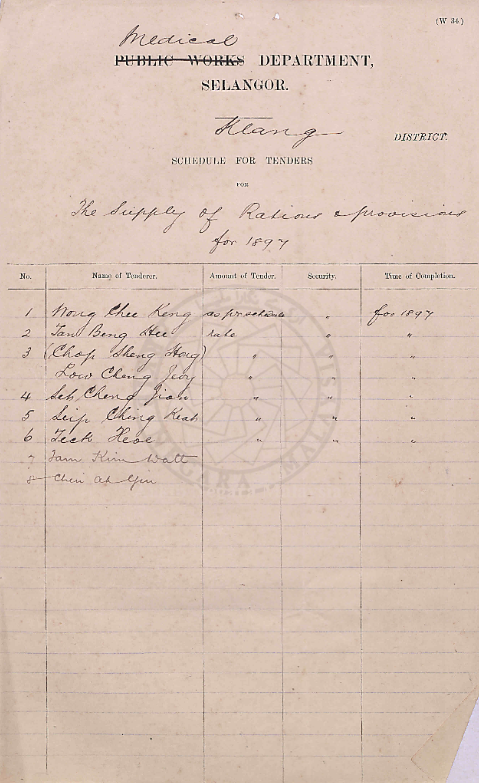 (W 34)
Medical
PUBLIC WORKS DEPARTMENT,
SELANGOR.
Klang
DISTRICT.
SCHEDULE FOR TENDERS
FOR
The Supply of Rations & provisions
for 1897
No. Name of Tenderer. Amount of Tender. Security. Time of Completion.
1 Wong Chee Keng as per schedule " for 1897
2 Tan Beng Hee rate " "
3 (Chop Sheng Hong) " " "
Low Cheng " "
4 Seh Cheng Jian " " "
5 Ching Keah " " "
6 Teck Heoe " " "
7 Tam Kim Watt
8 Chen Ah Yun